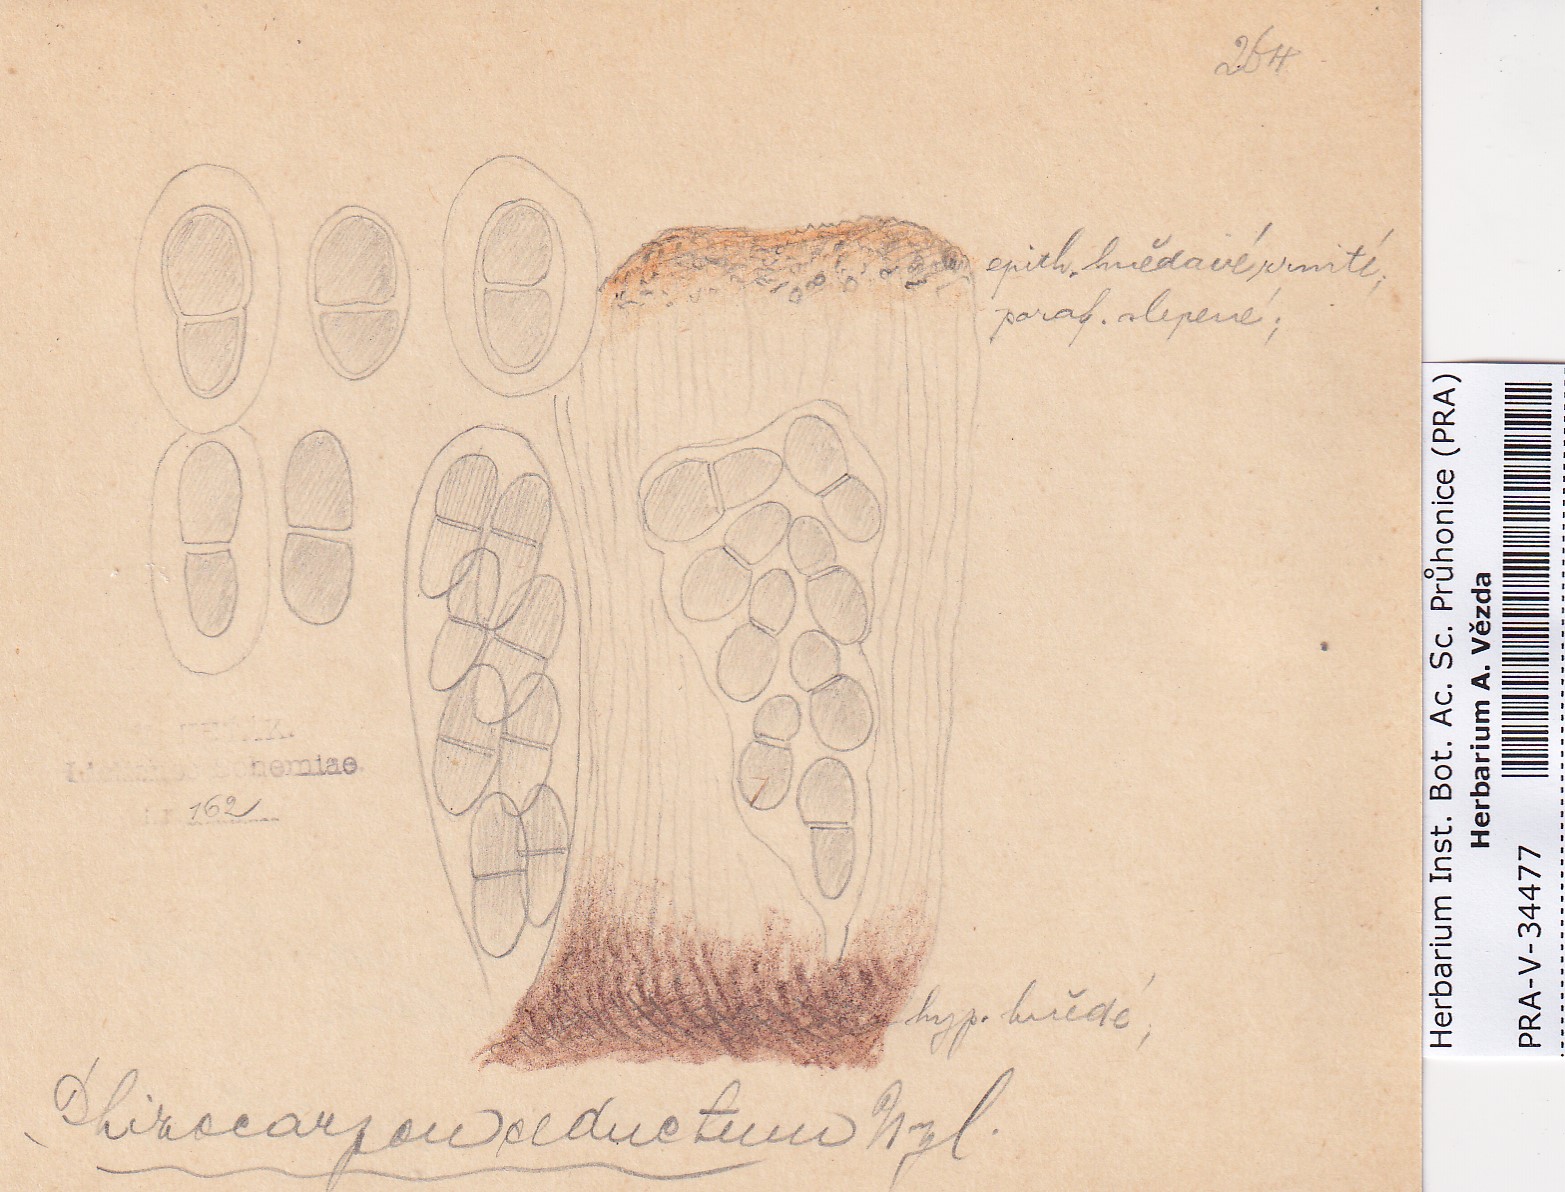 264
epith. hnědavé zrnité;
paraf. slepené;
Bohemiae
162
hyp. hnědé;
Rhizocarpon deductum Nyl.
Herbarium Inst. Bot. Ac. Sc. Průhonice (PRA)
Herbarium A. Vězda
PRA-V-34477